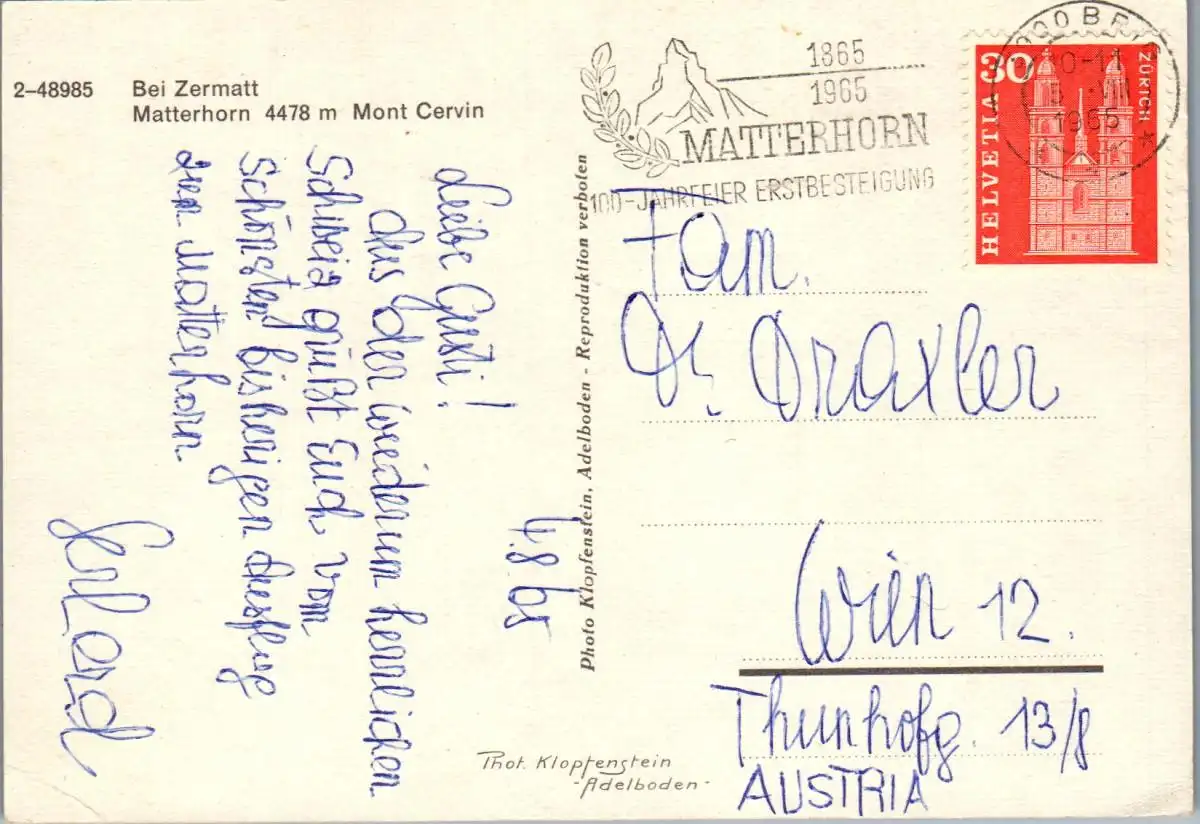 2-48985 Bei Zermatt
Matterhorn 4478 m Mont Cervin
4.8 65
Liebe Gusti!
Aus der wiederum herrlichen
Schweiz grüßt Euch, vom
schönsten bisherigen Ausflug
zum Matterhorn
Photo Klopfenstein, Adelboden - Reproduktion verboten
Phot. Klopfenstein
-Adelboden-
1865
1965
MATTERHORN
100-JAHRFEIER ERSTBESTEIGUNG
BRIG
10-11
1965
30
HELVETIA
ZÜRICH
Fam.
Dr. Draxler
Wien 12.
Thunhofg. 13/8
AUSTRIA